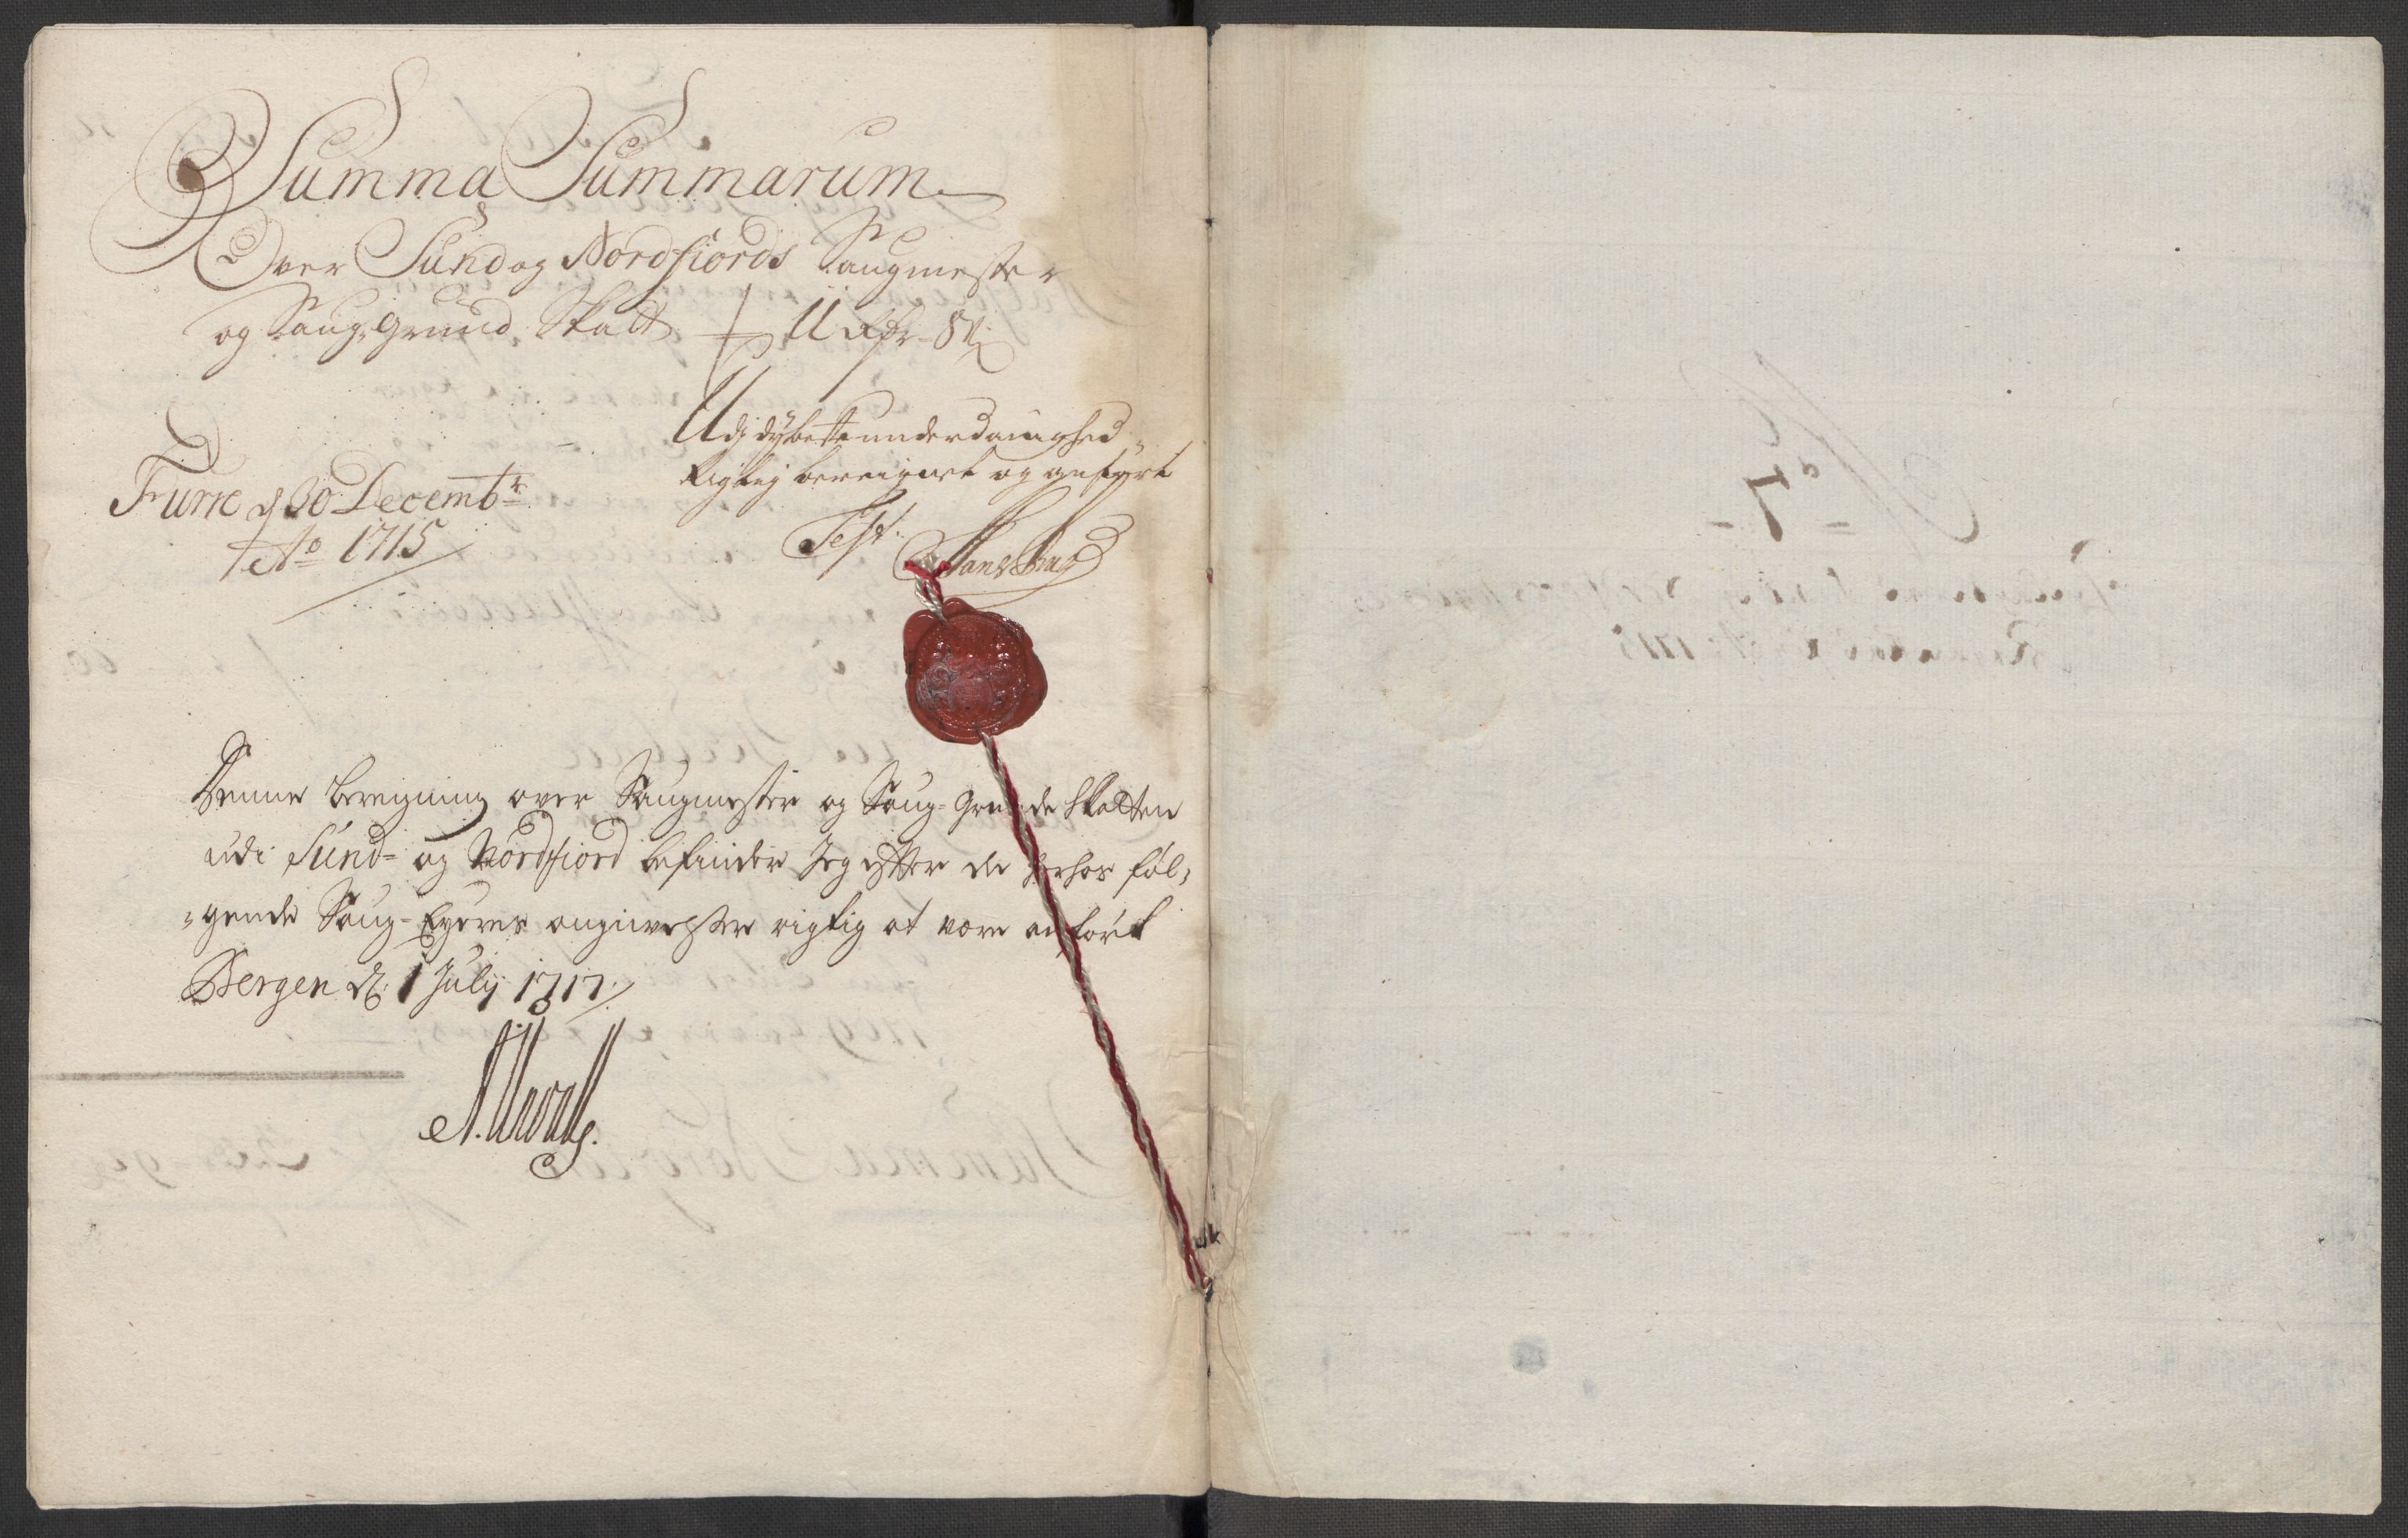 Summa Summarum
Over Sund og Nordfiords Saugmester
og Saug-Grund Skatt 11 Rdr - 8 ß
Udj dÿbeste underdanighed
Rigtig beregnet og anført
Furre d 30 Decembr
Ao 1715
Test.
Hans
Denne beregning over Saugmester og Saug-Grunde Skatten
udi Sund- og Nordfiord befinder Jeg efter de herhos føl-
-gende Saug-Eyeres angivelser rigtig at være anført
Bergen d. 1 Julij 1717.
No 7